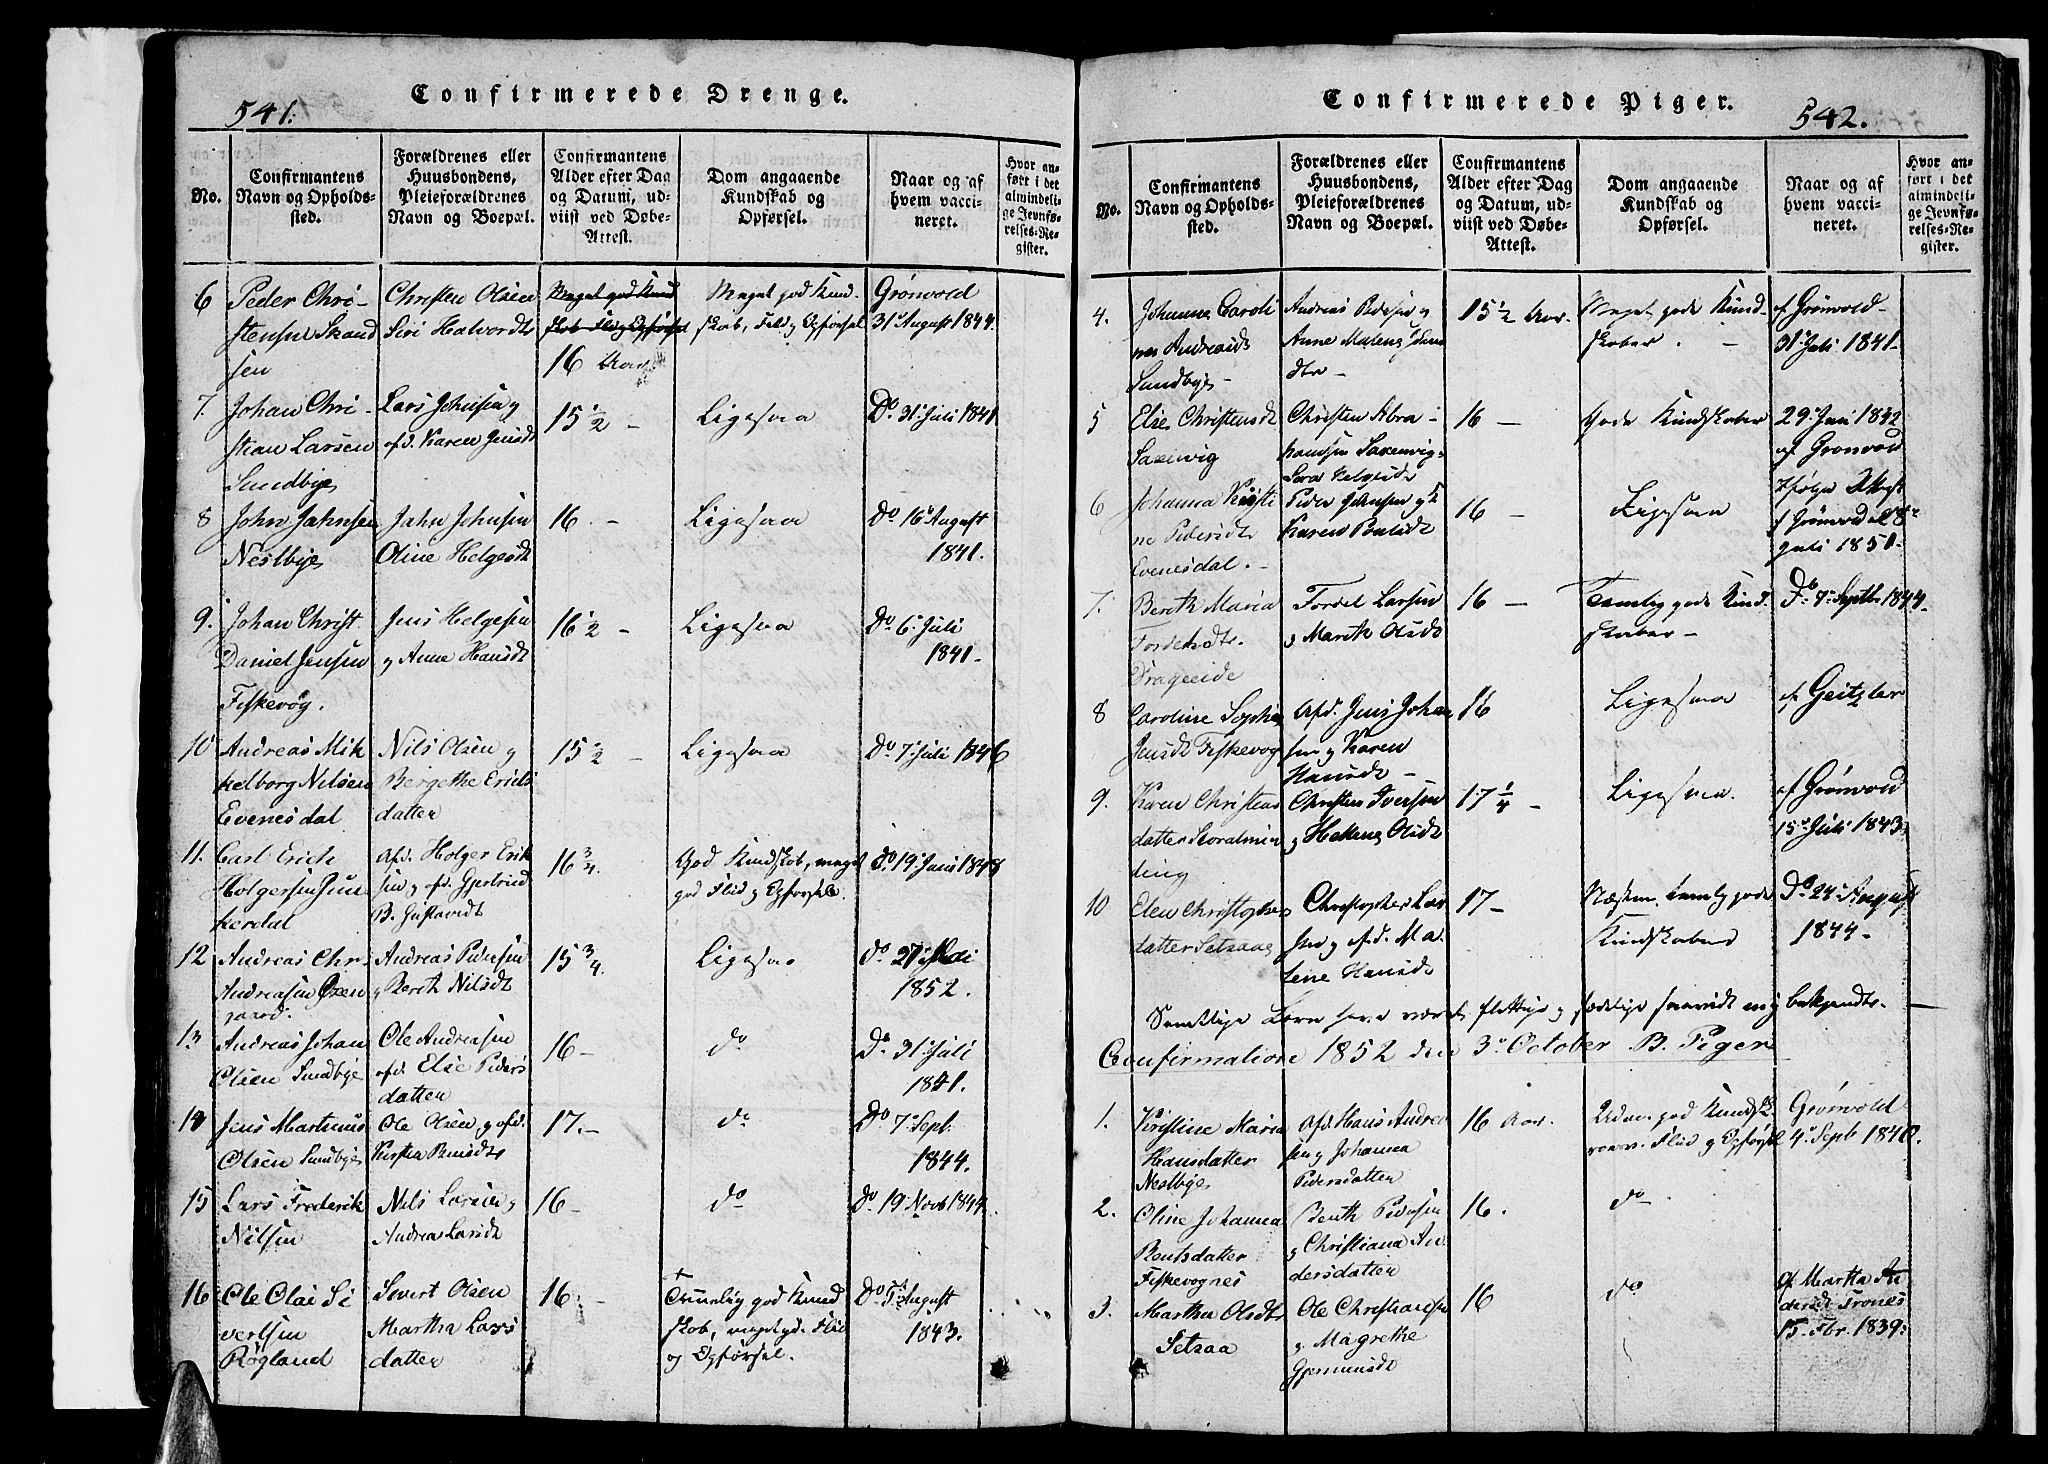 541.
Confirmerede Drenge.
No.
Confirmantens
Navn og Opholds-
sted.
Forældrenes eller
Huusbondens,
Pleieforældrenes
Navn og Boepæl.
Confirmantens
Alder efter Dag
og Datum, ud-
viist ved Døbe-
Attest.
Dom angaaende
Kundskab og
Opførsel.
Naar og af
hvem vacci-
neret.
Hvor an-
ført i det
almindeli-
ge Jevnfø-
relses-Re-
gister.
6
Peder Chri-
stensen Skand
sen
Christen Olsen
Siri Halvordt
Meget god Kund
skab Flid og Opførsel
16 Aar
Meget god Kund-
skab, Flid og Opførsel
Grönvold
31' August 1844.
7.
Johan Chri-
stian Larsen
Sundbye
Lars Johnsen og
afd. Karen Jensdt
15 1/2 -
Ligesaa
Do. 31' Juli 1841
8
John Jahnsen
Nestbye
Jahn Johnsen
Oline Helgesdt
16. -
Ligesaa
Do 16' August
1841.
9.
Johan Christ
Daniel Jensen
Fiskevög.
Jens Helgesen
og Anne Hansdt
16 1/2 -
Ligesaa
Do 6' Juli
1841.
10
Andreas Mik
kelborg Nilsen
Evenesdal
Nils Olsen og
Bergethe Erichs
datter
15 1/2 -
Ligesaa
Do 7' Juli 1846
11.
Carl Erich
Holgersen Jun
kerdal
Afd. Holger Erik
sen og afd. Gjertrud
B. Gustavsdt
16 3/4.
God Kundskab, meget
god Flid og Opførsel.
Do 19' Juni 1848
12
Andreas Chr-
Andreasen Oxen
gaard.
Andreas Pedersen
og Berth Nilsdt
15 3/4.
Ligesaa
Do 27' Mai
1852.
13
Andreas Johan
Olsen Sundbye
Ole Andreasen
afd. Else Peders
datter
16 -
do
Do 31' Juli
1841.
14
Jens Martinus
Olsen Sundbye
Ole Olsen, og afd.
17. -
do
Do 7' Sept.
1844.
15
Lars Frederik
Nilsen
Nils Larsen og
Andrea Larsdt
16 -
do
Do 19 Novb 1844.
16
Ole Olai Si
vertsen
Røgland
Sivert Olsen
Martha Lars
datter
16 -
Temmelig god Kund
skab, meget gd. Flid
og Opførsel.
Do 5' August
1843.
Confirmerede Piger.
542.
No.
Confirmantens
Navn og Opholds-
sted.
Forældrenes eller
Huusbondens,
Pleieforældrenes
Navn og Boepæl.
Confirmantens
Alder efter Dag
og Datum, ud-
viist ved Døbe-
Attest.
Dom angaaende
Kundskab og
Opførsel.
Naar og af
hvem vacci-
neret.
Hvor an-
ført i det
almindeli-
ge Jevnfø-
relses-Re-
gister.
4.
Johanna Caroli
Sundbye -
Andreas Pedersen og
15 1/2 Aar.
Meget gode Kund-
skaber. -
af Grönvold
31' Juli 1841 -
5
Else Christensdt
Saxenvig
Christen Abra-
hamsen Saxenvig
16 -
Gode Kundskaber
29' Juni 1842
af Grönvold
6
Johanna Kirsti
ne Pedersdt
Evenesdal. -
Peder Jensen og
16 -
Ligesaa
Ifølge Attest
af Grønvold af 8de
Juli 1851.
7.
Berth Maria
Tordelsdtr.
Drageeide
Tordel Larsen
og Marith Olsdt
16 -
Temlig gode Kund.
skaber -
Do 7' Septbr 1844.
8
Caroline Sophie
Jensdt Fiskevog
Afd. Jens Johan
sen og Karen
Hansdt -
16
Ligesaa
af Geitzler
9.
Karen Christens
datter Storalmin
ding
Christen Iversen
og Helena Olsdt
17 1/4 -
Ligesaa.
af Grönvold
15' Juli 1843.
10
Elen Christophers
datter Setsaae
Christopher Lar
sen og afd. Ma-
lene Hansdt
17 -
Næsten temlig gode
Kundskaber
Do 24' August
1844 -
Samtlige Børn have været flittige og sædelige saavidt mig bekjendt.
Confirmation 1852 den 3' October B. Piger
1.
Kristine Maria
Hansdatter
Nestbye
Afd. Hans Andrea
sen og Johanna
Pedersdatter
16 Aar.
Grönvold
4' Septb 1840.
2.
Oline Johanna
Bentsdatter
Fiskevognes
Benth Pedersen
og Christiana An
dersdatter
16.
do
3.
Martha Olsdtr
Setsaa
Ole Christiansen
og Magrethe
Gjermunsdt
16
do
af Martha An
dersdt Trones
15. Fbr. 1839.